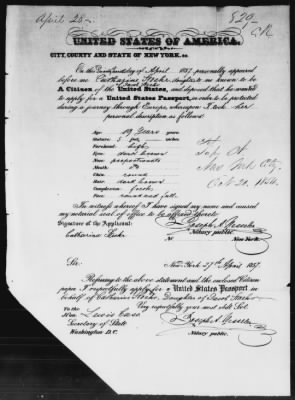 April 25
829
UNITED STATES OF AMERICA,
CITY, COUNTY AND STATE OF NEW YORK, ss.
On this day of April 1857 personally appeared
before me Catharine daughter to me known to be
A Citizen of the United States, and deposed that he wanted
to apply for a United States Passport, in order to be protected
during a journey through Europe, whereupon I took her
personal description as follows:
Age 19 Years
Stature 5
Forehead high
Eyes dark brown
Nose proportionate
Mouth
Chin round
Hair dark brown
Complexion fresh
Face round and full
New York City
Oct 20. 1834
In witness whereof I have signed my name and caused
my notarial seal of office to be affixed thereto
Signature of the Applicant:
Joseph A.
Notary public
Catharine
New York.
New York 27th April 1857.
Sir
Referring to the above statement and the enclosed Citizen
paper I respectfully apply for a United States Passport in
behalf of Catharine Daughter of Jacob
Very respectfully your most Obt Svt
To the
Hon. Lewis Cass
Secretary of State
Washington D.C.
Joseph A.
Notary public.